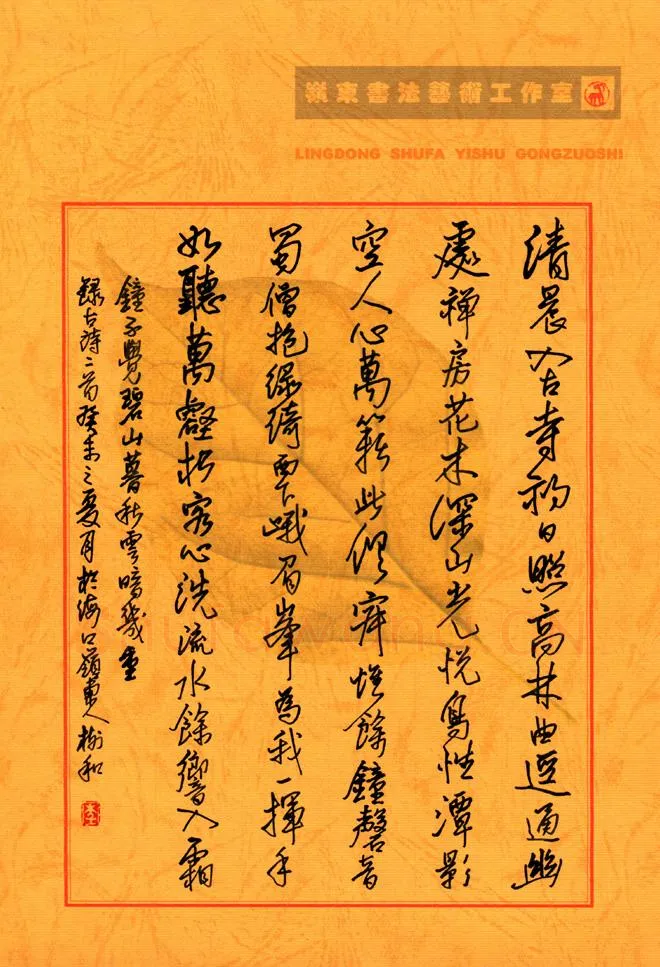 嶺東書法藝術工作室
LINGDONG SHUFA YISHU GONGZUOSHI
清晨入古寺初日照高林曲逕通幽
處禅房花木深山光悦鳥性潭影
空人心萬籟此俱寂惟餘鐘磬音
蜀僧抱綠綺西下峨眉峯為我一揮手
如聽萬壑松客心洗流水餘響入霜
鐘不覺碧山暮秋雲暗幾重
録古詩二首癸未之夏月於海口嶺東人樹和